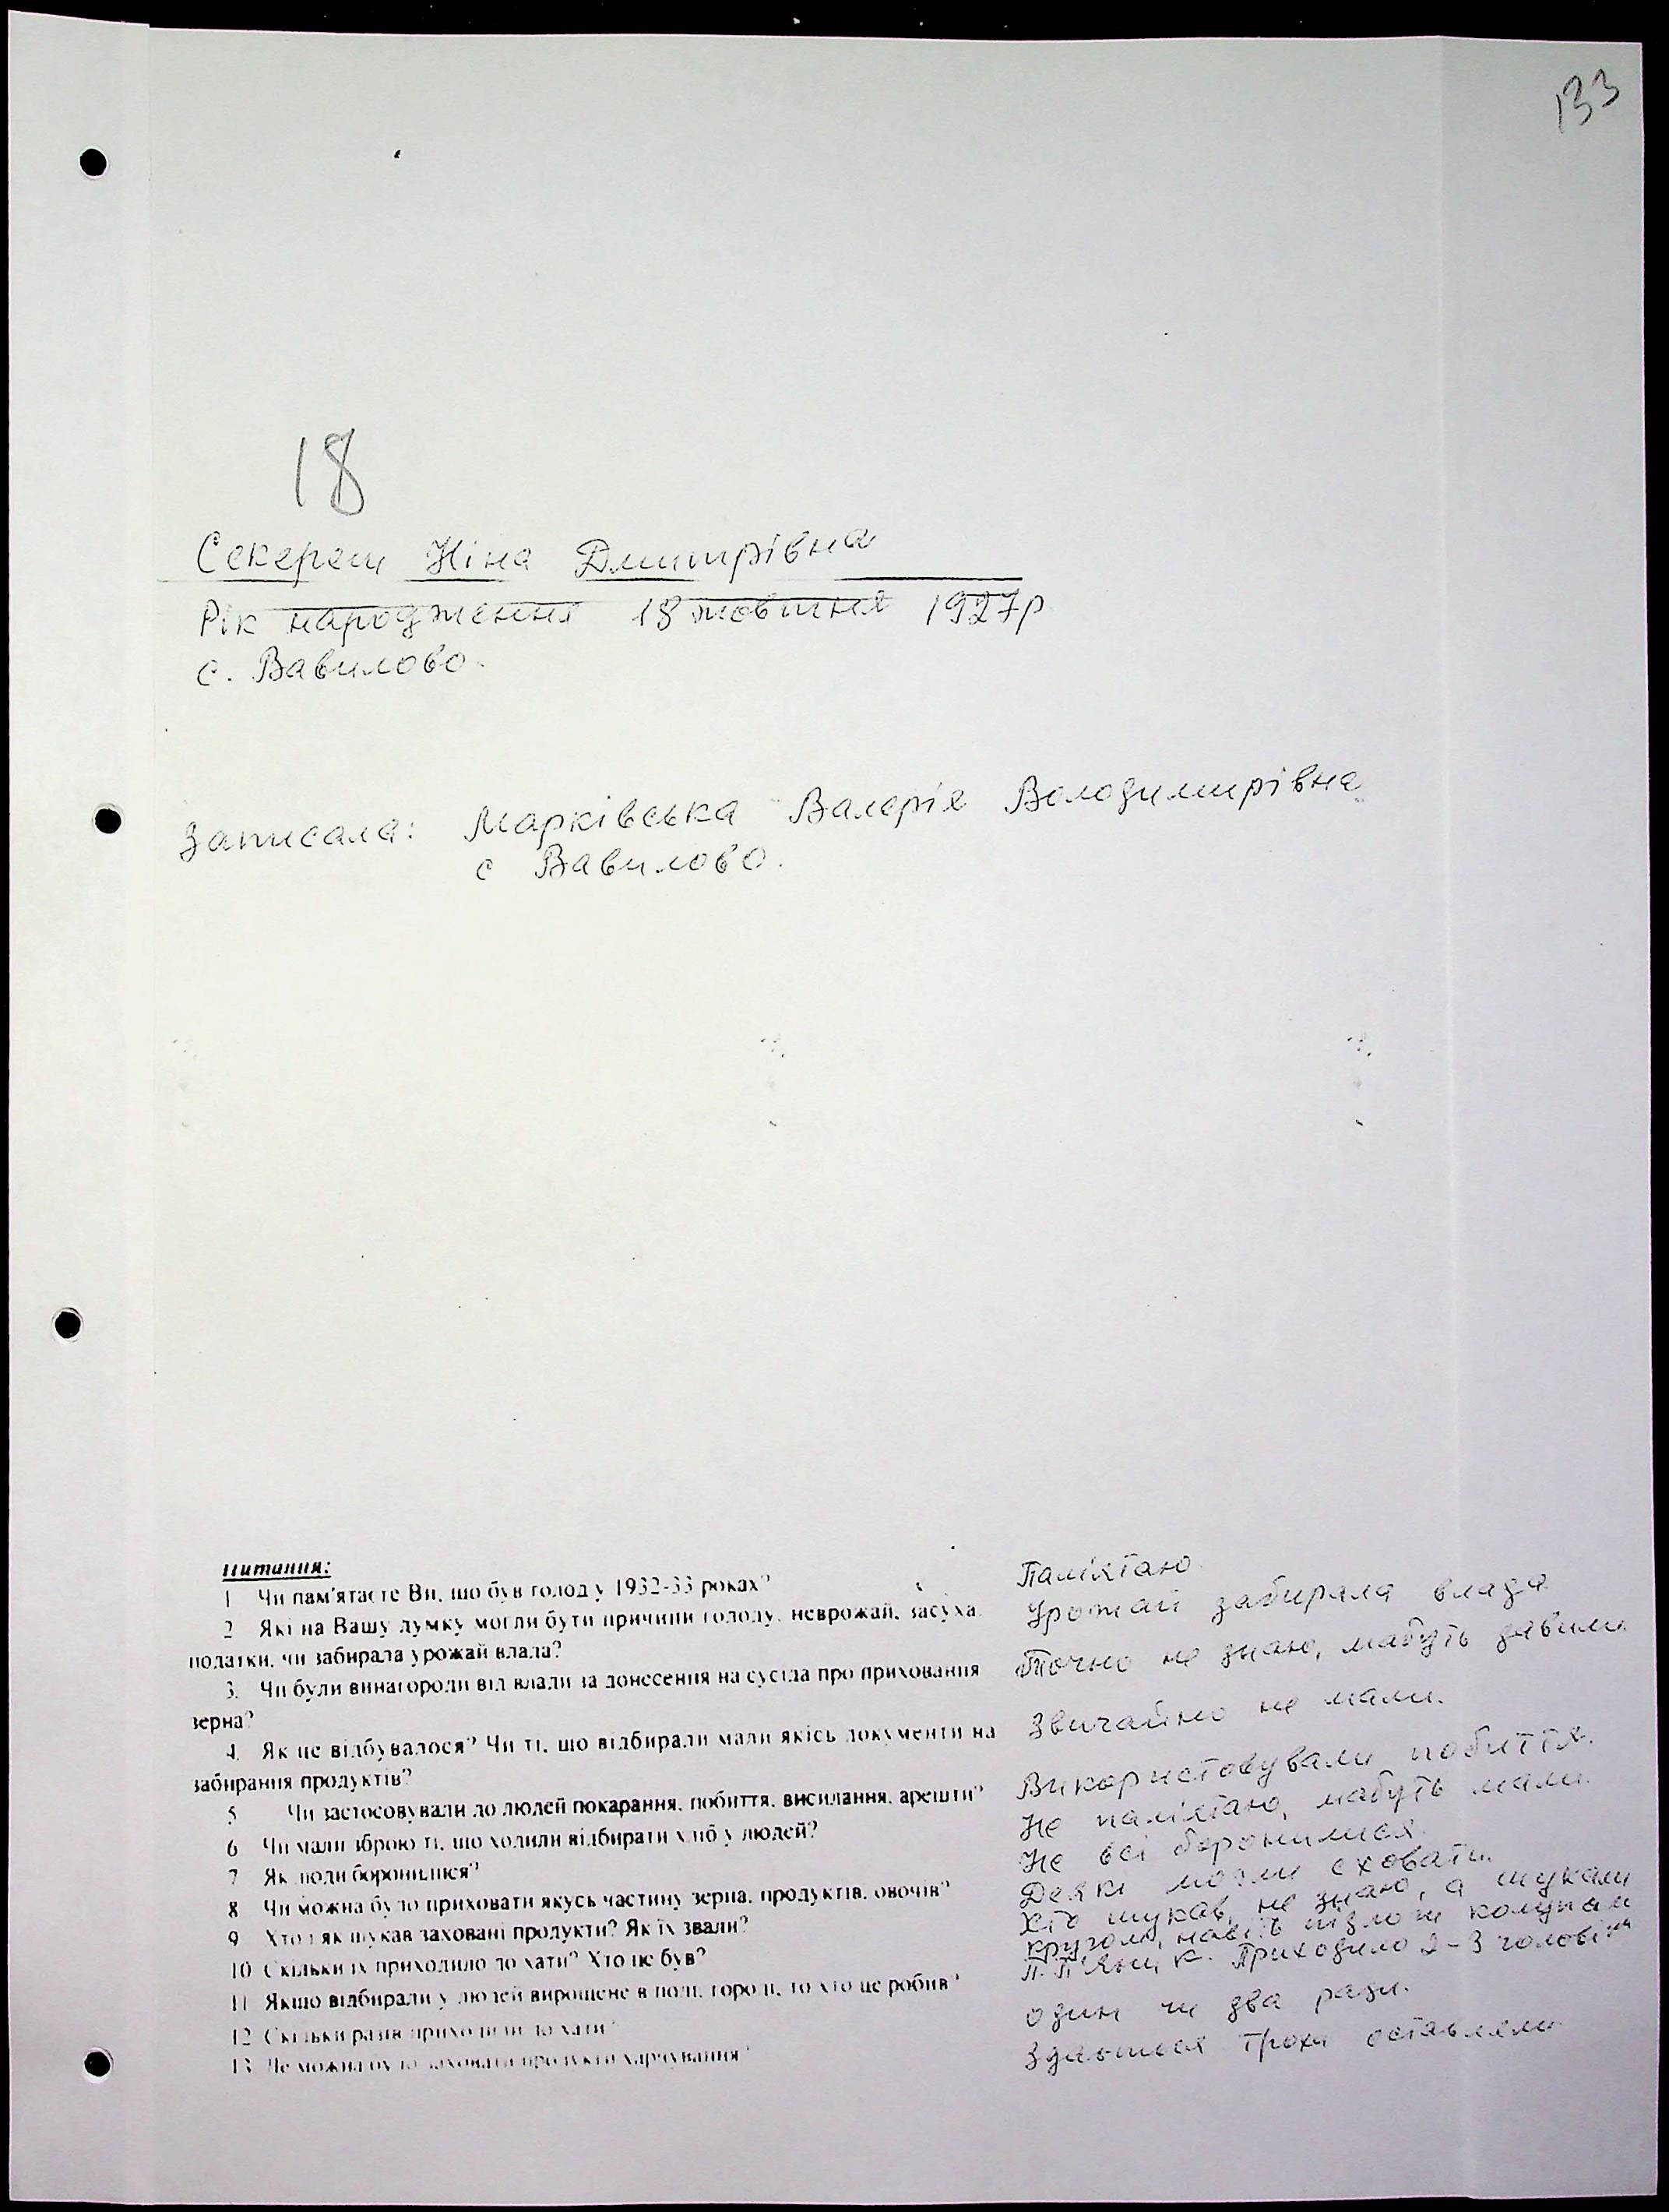 133
18
Секереш Ніна Дмитрівна
Рік народження 18 жовтня 1927р
с. Вавилово.
Записала: Марківська Валерія Володимирівна
с Вавилово.
Питання:
1 Чи пам'ятаєте Ви, що був голод у 1932-33 роках?
Паміятаю.
2 Які на Вашу думку могли бути причини голоду: неврожай, засуха,
податки, чи забирала урожай влада?
Урожай забирала влада
3. Чи були винагороди від влади за донесення на сусіда про приховання
зерна?
Точно не знаю, мабуть давили
4. Як це відбувалося? Чи ті, що відбирали мали якісь документи на
забирання продуктів?
Звичайно не мали.
5 Чи застосовували до людей покарання, побиття, висилання, арешти?
Використовували побиття.
6 Чи мали зброю ті, що ходили відбирати хліб у людей?
Не паміятаю, мабуть мали.
7 Як люди боронилися?
Не всі боронилися.
8 Чи можна було приховати якусь частину зерна, продуктів, овочів?
Деякі могли сховати.
9 Хто і як шукав заховані продукти? Як їх звали?
Хто шукав, не знаю, а шукали
кругом, навіть підлоги
10 Скільки їх приходило до хати? Хто це був?
Приходило 2-3 чоловік
11 Якщо відбирали у людей вирощене в полі, городі, то хто це робив?
12 Скільки разів приходили до хати?
один чи два рази.
13 Де можна було заховати продукти харчування?
Здається трохи оставляли